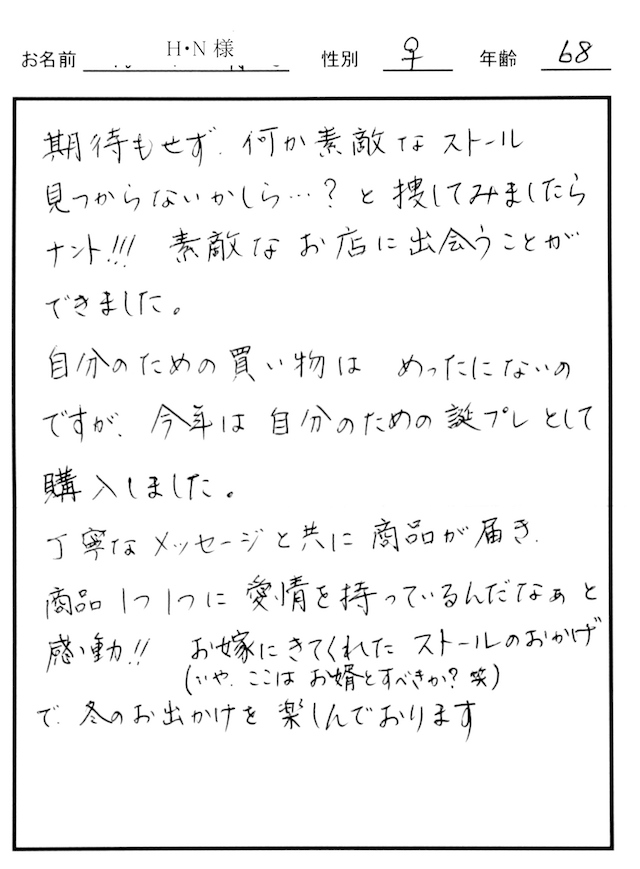 お名前 H・N 様 性別 ♀ 年齢 68
期待もせず、何か素敵なストール
見つからないかしら…?と捜してみましたら
ナント!!! 素敵なお店に出会うことが
できました。
自分のための買い物は めったにないの
ですが、今年は自分のための誕プレとして
購入しました。
丁寧なメッセージと共に商品が届き、
商品1つ1つに愛情を持っているんだなぁと
感動!! お嫁にきてくれたストールのおかげ
(いや、ここはお婿とすべきか?笑)
で、冬のお出かけを楽しんでおります